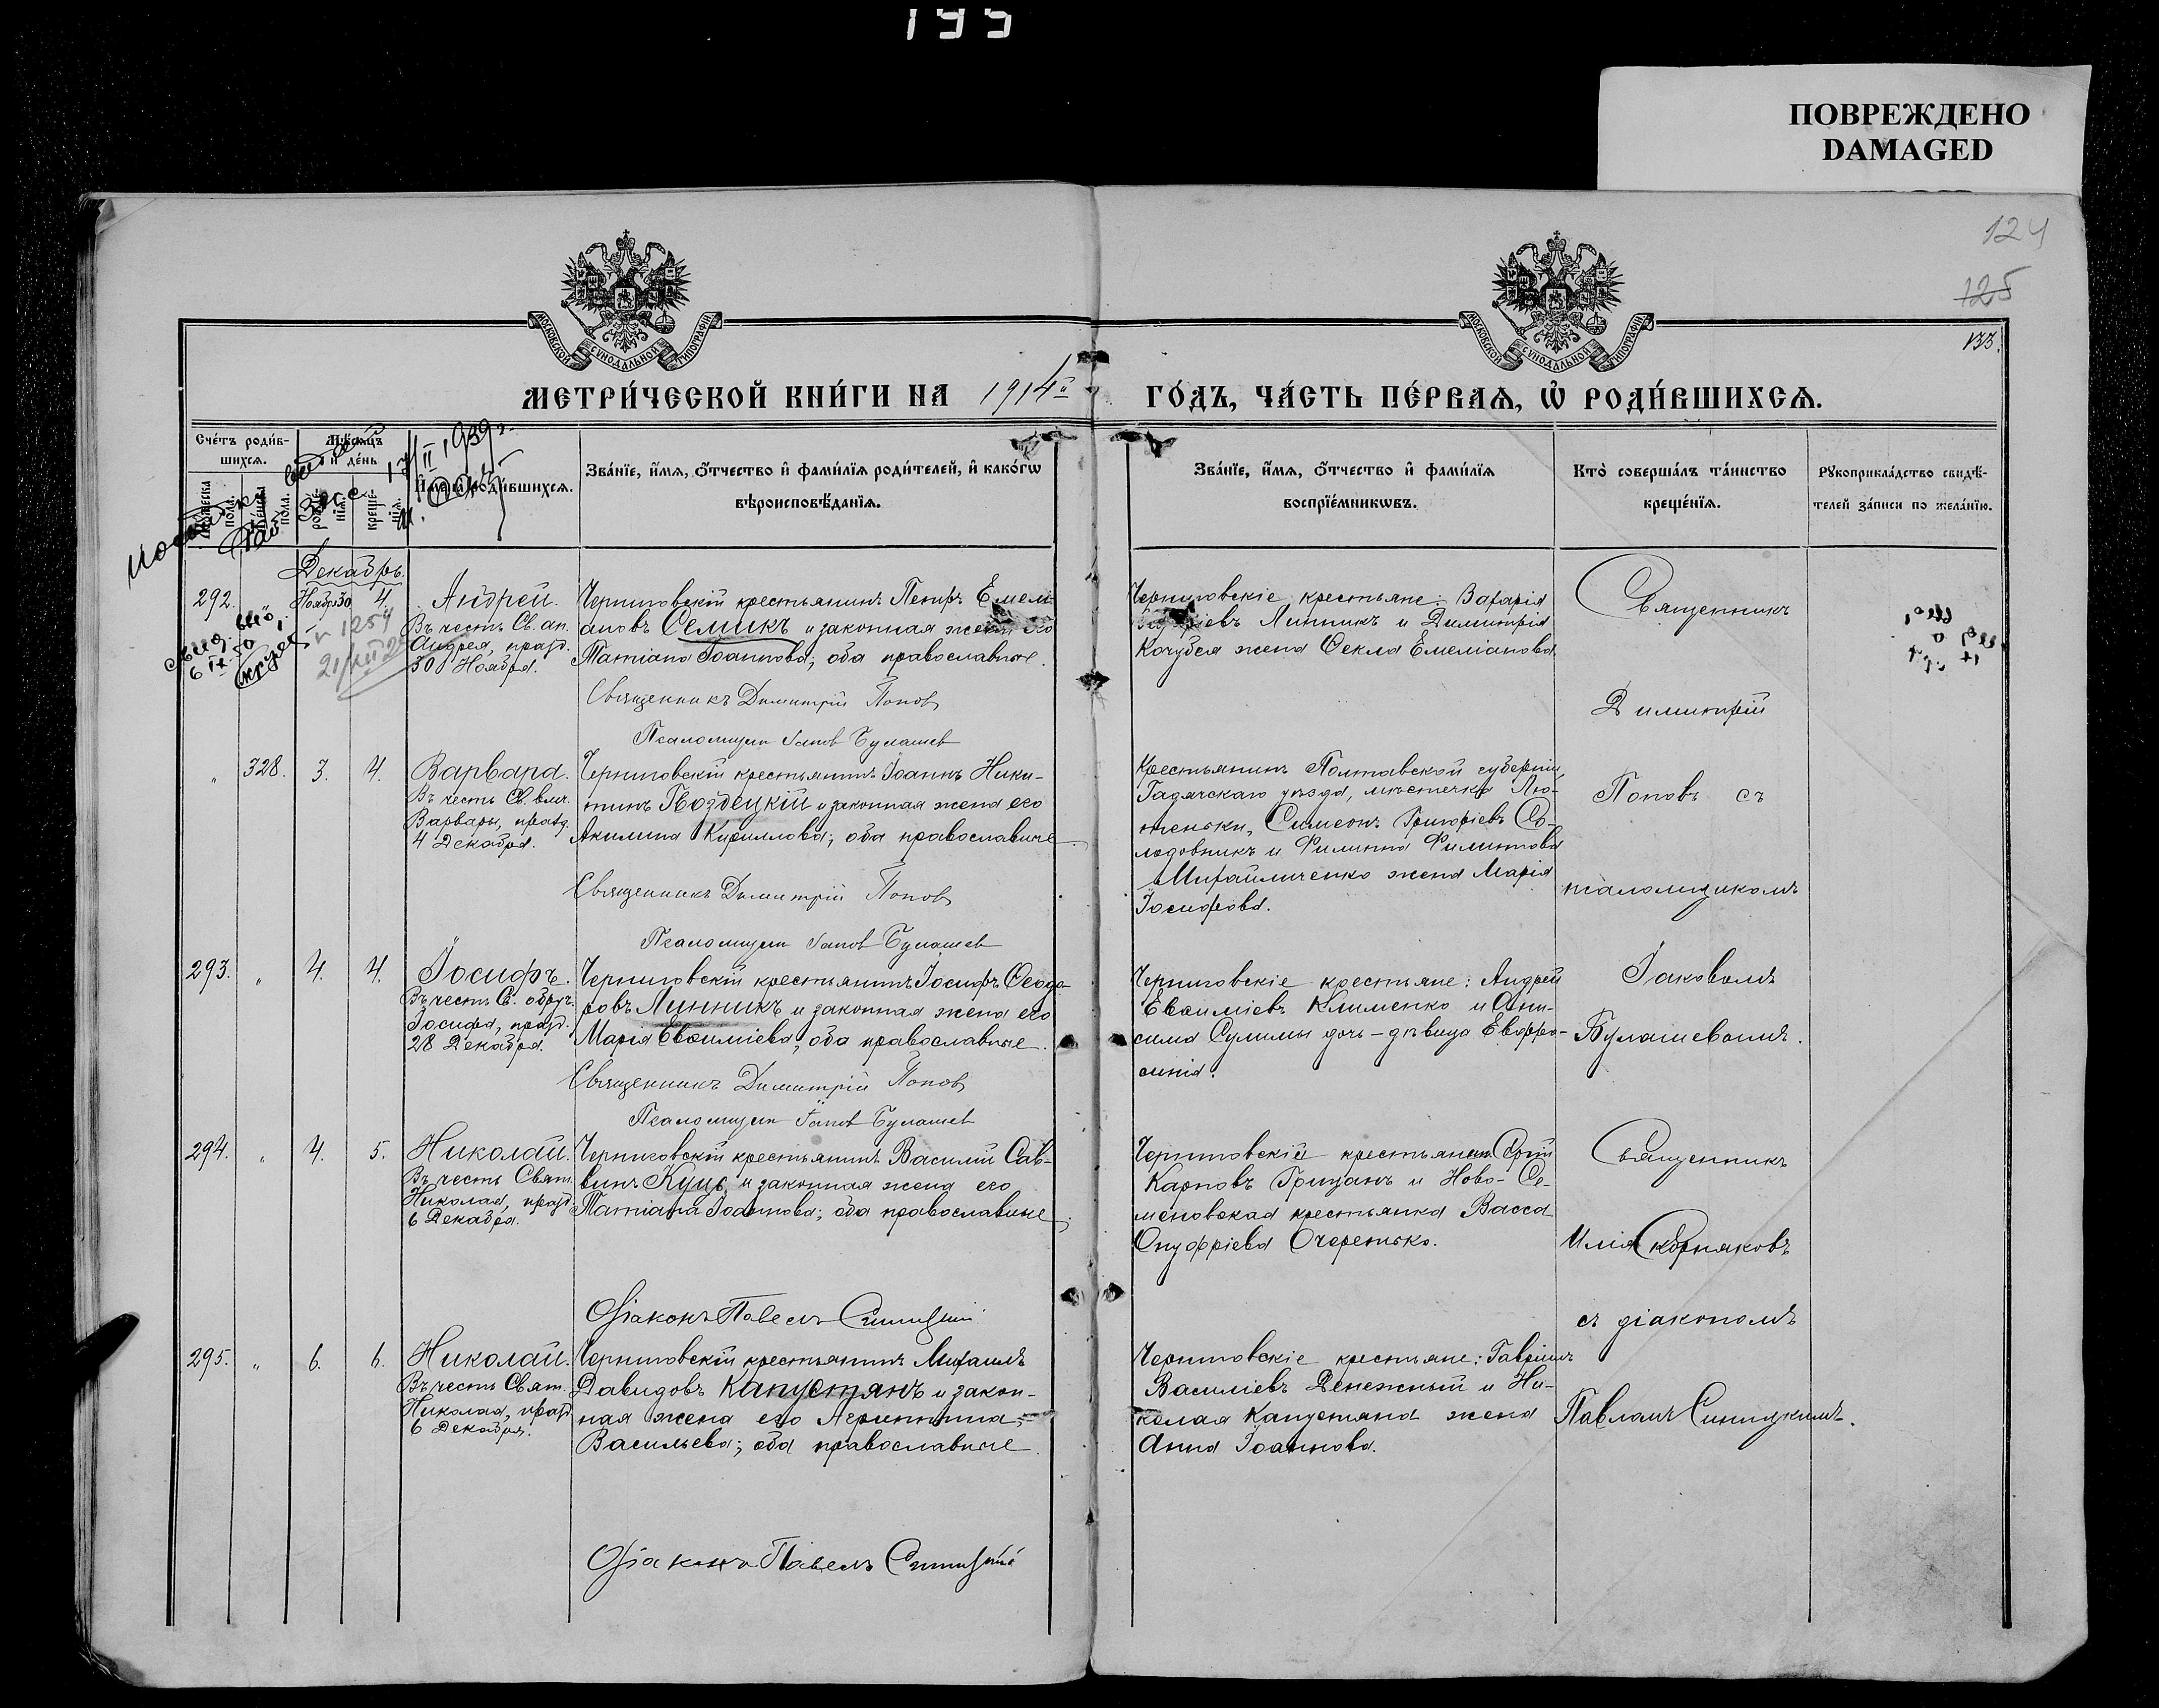 195
ПОВРЕЖДЕНО
DAMAGED
124
125
133.
МОСКОВСКОЙ СѴНОДАЛЬНОЙ ТИПОГРАФІИ
МОСКОВСКОЙ СѴНОДАЛЬНОЙ ТИПОГРАФІИ
МЕТРИ́ЧЕСКОЙ КНИ́ГИ НА 1914й ГО́ДЪ, ЧА́СТЬ ПЕ́РВАѦ, Ѡ҆ РОДИ́ВШИХСѦ.
Сче́тъ роди́в-
шихсѧ.
Мѣ́сѧцъ
и҆ де́нь
пола.
пола.
рожде-
нїѧ.
креще-
нїѧ.
роди́вшихсѧ.
Зва́нїе, и҆́мѧ, ѻ҆́тчество и҆ фами́лїѧ роди́телей, и҆ како́гѡ
вѣроисповѣ́данїѧ.
Зва́нїе, и҆́мѧ, ѻ҆́тчество и҆ фами́лїѧ
воспрїе́мникѡвъ.
Кто̀ соверша́лъ та́инство
креще́нїѧ.
Рꙋкоприкла́дство свидѣ́-
телей за́писи по жела́нїю.
II 1939 г.
Декабрь.
292.
Ноября 30
4.
Андрей.
Въ честь Св. ап.
Андрея, празд.
30 Ноября.
№ 1254
21/XII
6 IX 50
Черниговскій крестьянинъ Петръ Емелі-
ановъ Семикъ и законная жена его
Татіана Іоаннова; оба православные.
Священникъ Димитрій Попов
Псаломщик Іаков Булашев
Черниговскіе крестьяне: Захарія
Линникъ и Димитрія
Кочубея жена Ѳекла Емеліанова.
Священникъ
Димитрій
Поповъ съ
псаломщикомъ
Іаковомъ
Булашевымъ.
"
328.
3.
4.
Варвара.
Въ честь Св. влмч.
Варвары, празд.
4 Декабря.
Черниговскій крестьянинъ Іоаннъ Ники-
тинъ Гвоздецкій и законная жена его
Акилина Кириллова; оба православные.
Священникъ Димитрій Попов
Псаломщик Іаков Булашев
Крестьянинъ Полтавской губерніи,
Гадячскаго уѣзда, мѣстечка Лю-
теньки, Симеонъ Григоріевъ Со-
лодовникъ и Филиппа Филиппова
Михайличенко жена Марія
Іосифова.
293.
"
4.
4.
Іосифъ.
Въ честь Св. обруч.
Іосифа, празд.
28 Декабря.
Черниговскій крестьянинъ Іосифъ Ѳеодо-
ровъ Линникъ и законная жена его
Марія Евѳиміева; оба православные.
Священникъ Димитрій Попов
Псаломщик Іаков Булашев
Черниговскіе крестьяне: Андрей
Евѳиміевъ Клименко и Они-
сима Сулимы дочь - дѣвица Евфро-
синія.
294.
"
4.
5.
Николай.
Въ честь Свят.
Николая, празд.
6 Декабря.
Черниговскій крестьянинъ Василій Сав-
винъ Куцъ и законная жена его
Татіана Іоаннова; оба православные.
Діаконъ Павелъ Синицкій
Черниговскій крестьянинъ Сергій
Карповъ Грицанъ и Ново-Се-
меновская крестьянка Васса
Онуфріева Очеретько.
Священникъ
Илія Корняковъ
съ діакономъ
Павломъ Синицкимъ.
295.
"
6.
6.
Николай.
Въ честь Свят.
Николая, празд.
6 Декабря.
Черниговскій крестьянинъ Михаилъ
Давидовъ Капустянъ и закон-
ная жена его Агриппина
Васильева; оба православные.
Діаконъ Павелъ Синицкій
Черниговскіе крестьяне: Гавріилъ
Василіевъ Денежный и Ни-
колая Капустяна жена
Анна Іоаннова.